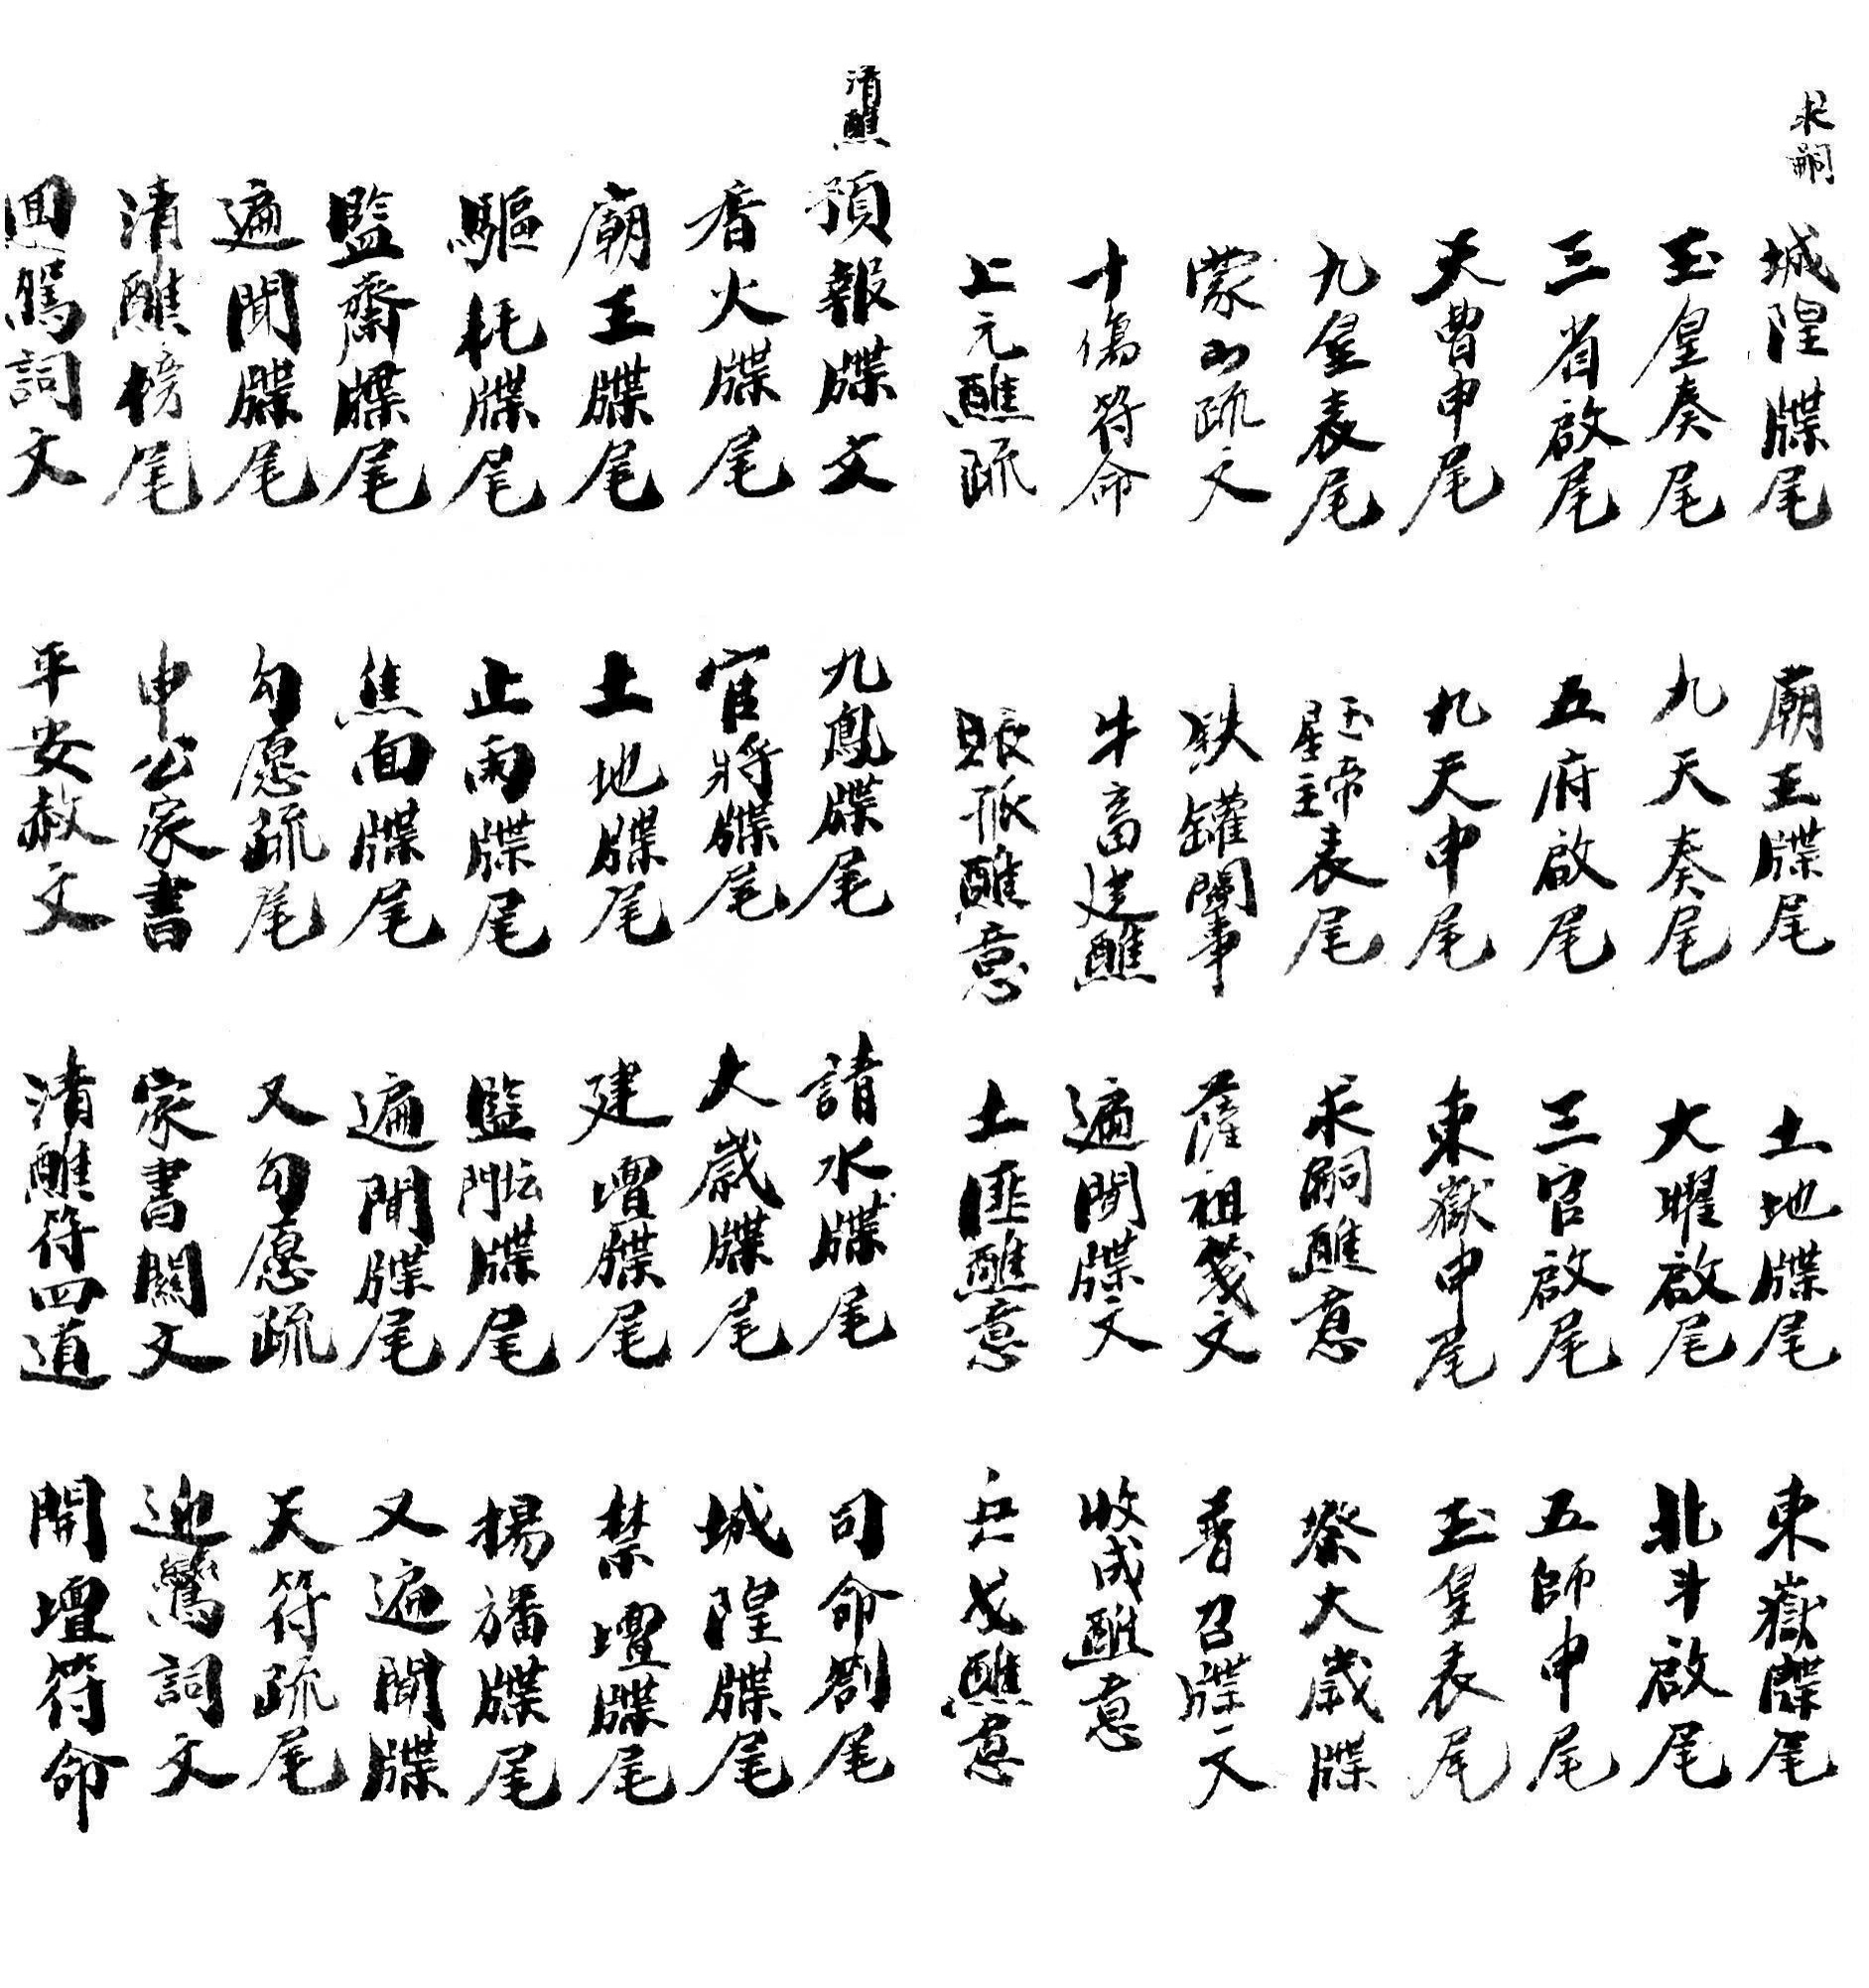 求嗣 城隍牒尾 廟王牒尾 土地牒尾 東嶽牒尾
玉皇奏尾 九天奏尾 大曜啟尾 北斗啟尾
三省啟尾 五府啟尾 三官啟尾 五師申尾
天曹申尾 九天申尾 東嶽申尾 玉皇表尾
九皇表尾 玉帝星主表尾 求嗣醮意 祭大歲牒
蒙山疏文 鉄罐關事 薩祖箋文 普召牒文
十傷符命 牛畜建醮 遍聞牒文 收成醮意
上元醮疏 賑孤醮意 土匪醮意 兵戈醮意
清醮 預報牒文 九鳳牒尾 請水牒尾 司命劄尾
香火牒尾 官將牒尾 大歲牒尾 城隍牒尾
廟王牒尾 土地牒尾 建壇牒尾 禁壇牒尾
驅耗牒尾 止雨牒尾 監坛門牒尾 揚旛牒尾
監齋牒尾 焦面牒尾 遍聞牒尾 又遍聞牒
遍聞牒尾 勾愿疏尾 又勾愿疏 天符疏尾
清醮榜尾 申公家書 家書關文 迎鸞詞文
迴鸞詞文 平安赦文 清醮符四道 開壇符命